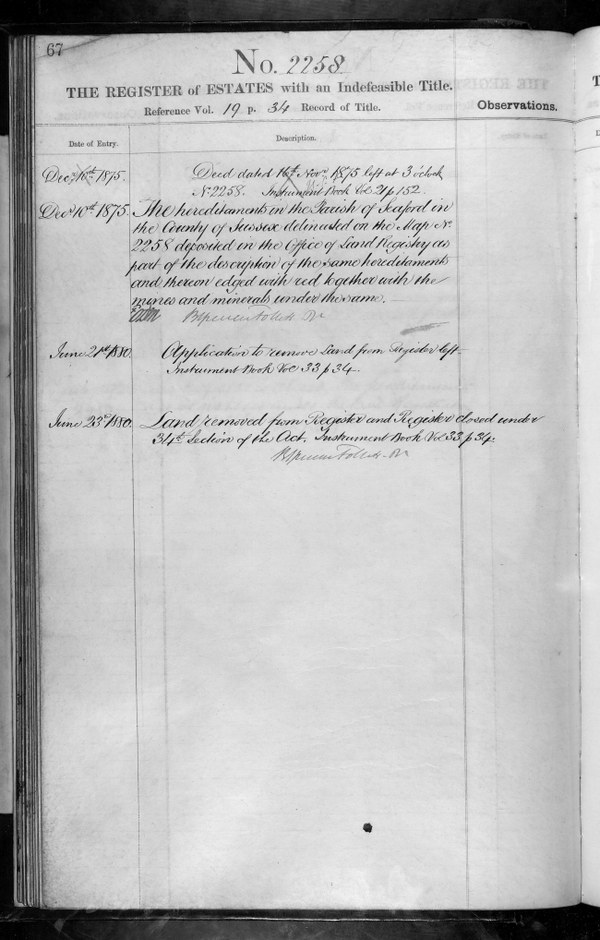 67
No. 2258
THE REGISTER of ESTATES with an Indefeasible Title.
Reference Vol. 19 p. 34 Record of Title.
Observations.
Date of Entry.
Description.
Decr 10th 1875.
Deed dated 16th Novr 1875 left at 3 o'clock
No 2258. Instrument Book Vol 21 p 152.
Decr 10th 1875.
The hereditaments in the Parish of Seaford in
the County of Sussex delineated on the Map No.
2258 deposited in the Office of Land Registry as
part of the description of the same hereditaments
and thereon edged with red together with the
mines and minerals under the same.
June 21st 1880.
Application to remove Land from Register left
Instrument Book Vol 33 p 34
June 23rd 1880.
Land removed from Register and Register closed under
34th Section of the Act. Instrument Book Vol 33 p 34.